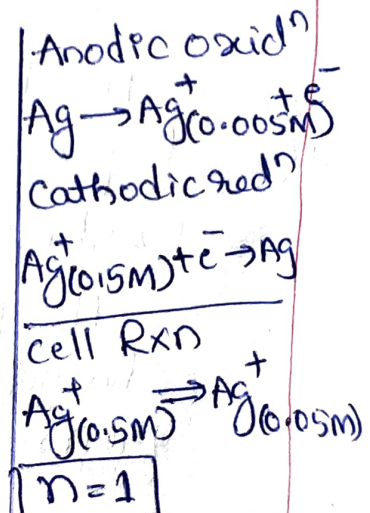 Anodic oxidⁿ
Ag → Ag⁺(0.005M) + e⁻
Cathodic redⁿ
Ag⁺(0.5M) + e⁻ → Ag
Cell Rxn
Ag⁺(0.5M) ⇌ Ag⁺(0.05M)
n = 1